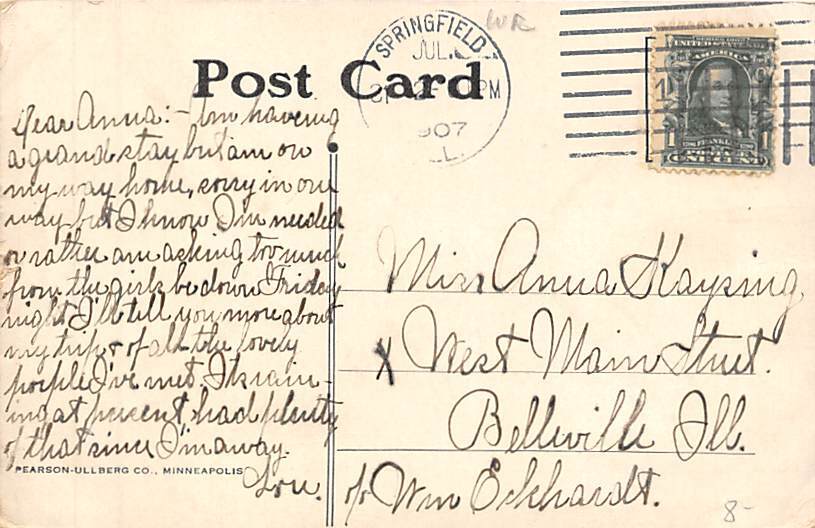 Post Card
WR
SPRINGFIELD
JUL.
PM
1907
ILL.
SERIES 1902
UNITED STATES OF
AMERICA
FRANKLIN
1 ONE CENT 1
Dear Anna:- I'm having
a grand stay but am on
my way home, sorry in one
way but I know I'm needed
or rather am asking too much
from the girls be down Friday
night I'll tell you more about
my trip & of all the lovely
people I've met. It's rain-
ing at present had plenty
of that since I'm away.
Lou.
PEARSON-ULLBERG CO., MINNEAPOLIS
Miss Anna Kaysing
X West Main Street.
Belleville Ill.
c/o Wm Eckhardt.
8-